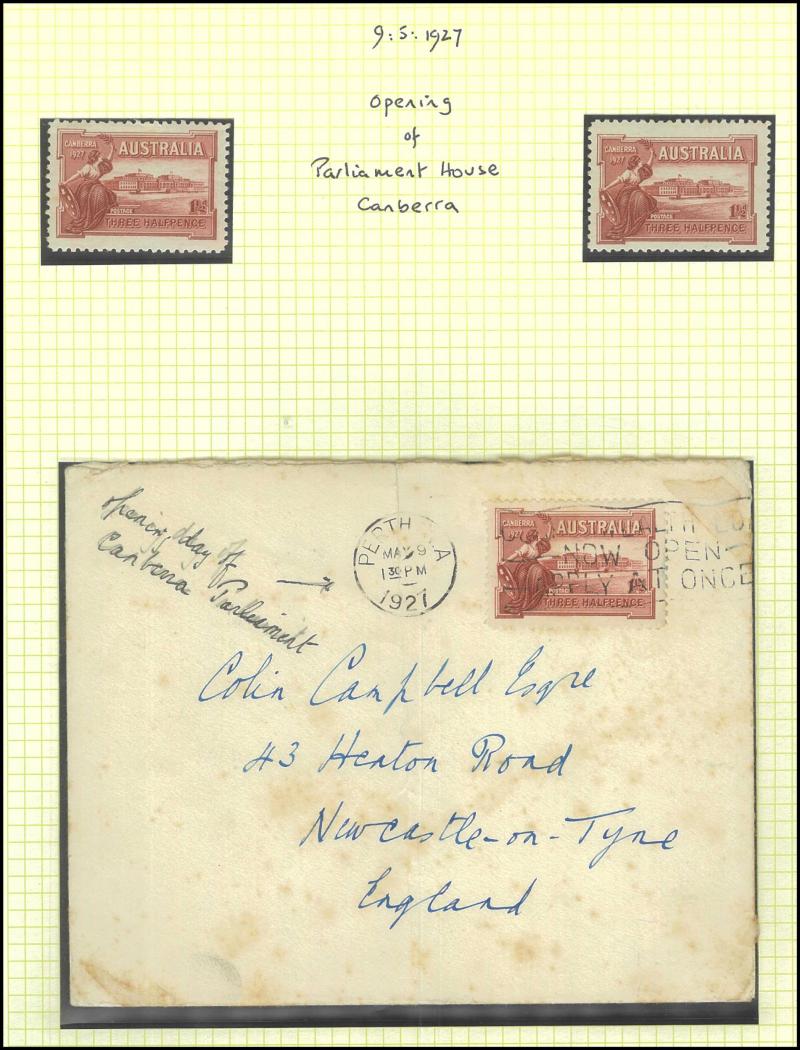 9:5:1927
Opening
of
Parliament House
Canberra
CANBERRA
1927
AUSTRALIA
POSTAGE
1½d
THREE HALFPENCE
CANBERRA
1927
AUSTRALIA
POSTAGE
1½d
THREE HALFPENCE
opening day of
Canberra Parliament
PERTH W.A
MAY 9
1 30 PM
1927
CANBERRA
1927
AUSTRALIA
THREE HALFPENCE
NOW OPEN
APPLY AT ONCE
Colin Campbell Esqre
43 Heaton Road
Newcastle-on-Tyne
England